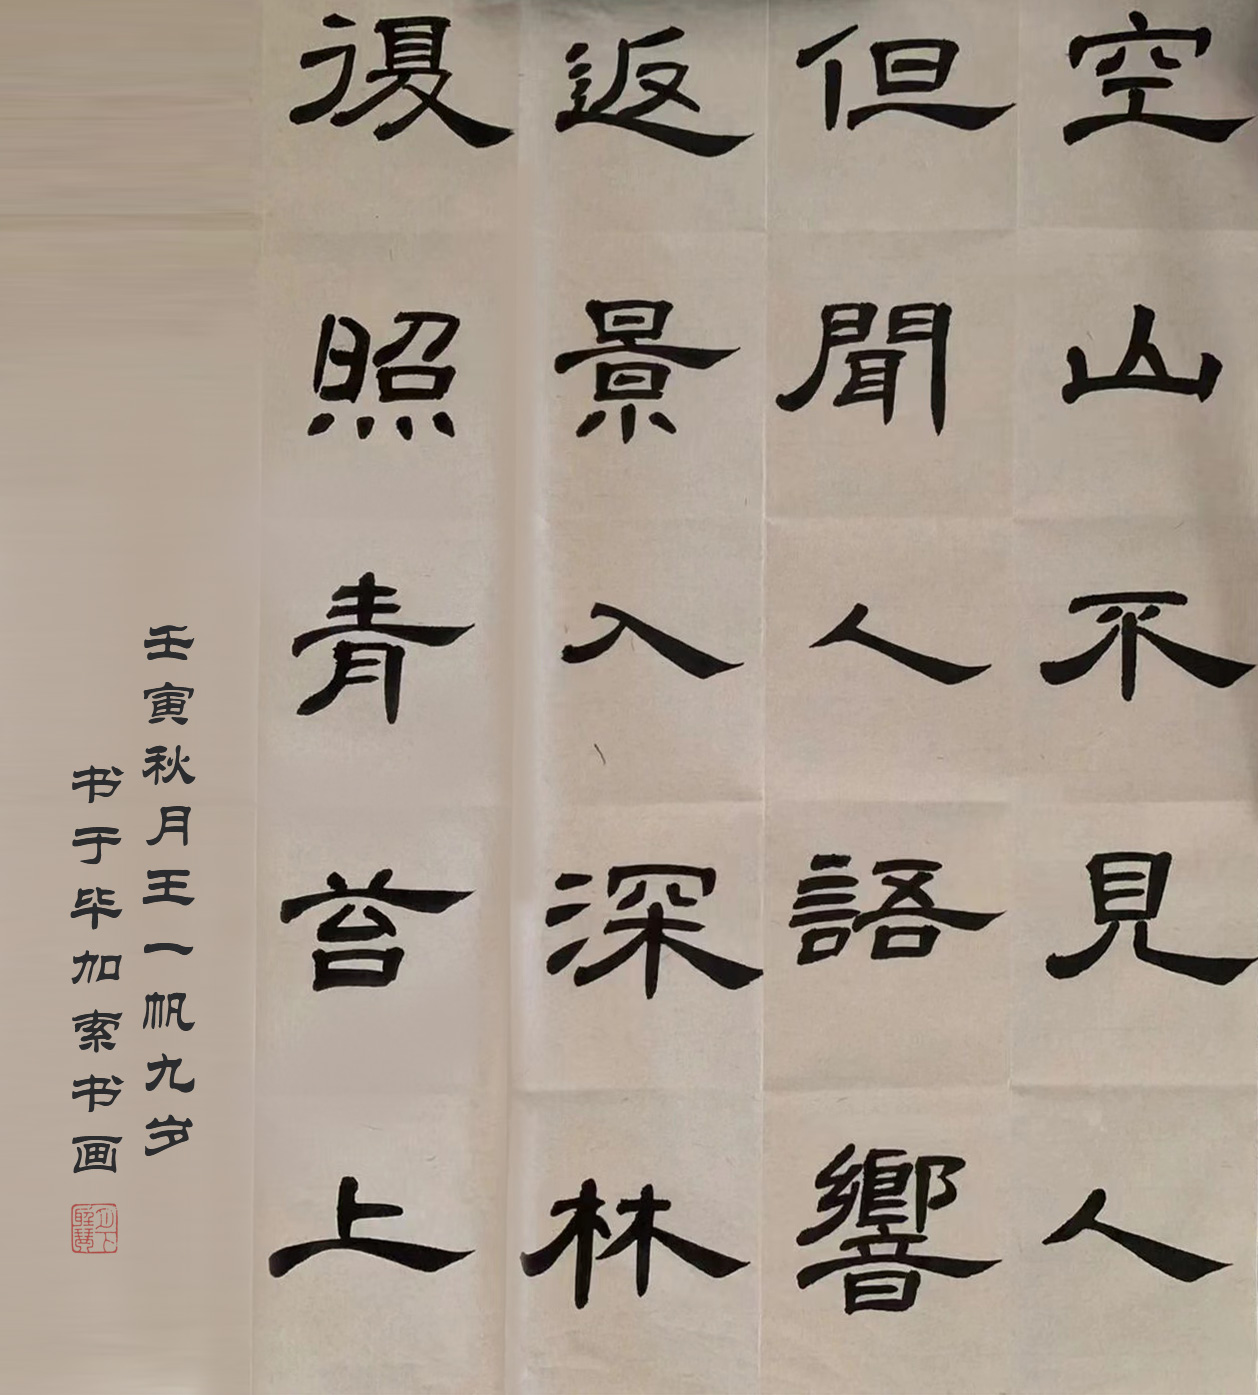 空山不見人
但聞人語響
返景入深林
復照青苔上
壬寅秋月王一帆九岁
书于毕加索书画